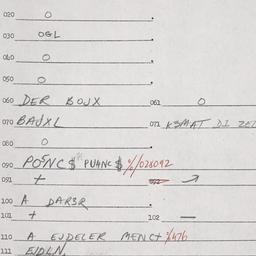 020 O
030 OGL
040 O
050 O
060 DER BOJX 061 O
070 BAJXL 071 KBMAT DI ZEL
080 O
090 $ PUANC $ %/028092
091 +
100 A DARBR
101 + 102 —
110 A EJDELER MENCT %476
111 EJDLN.